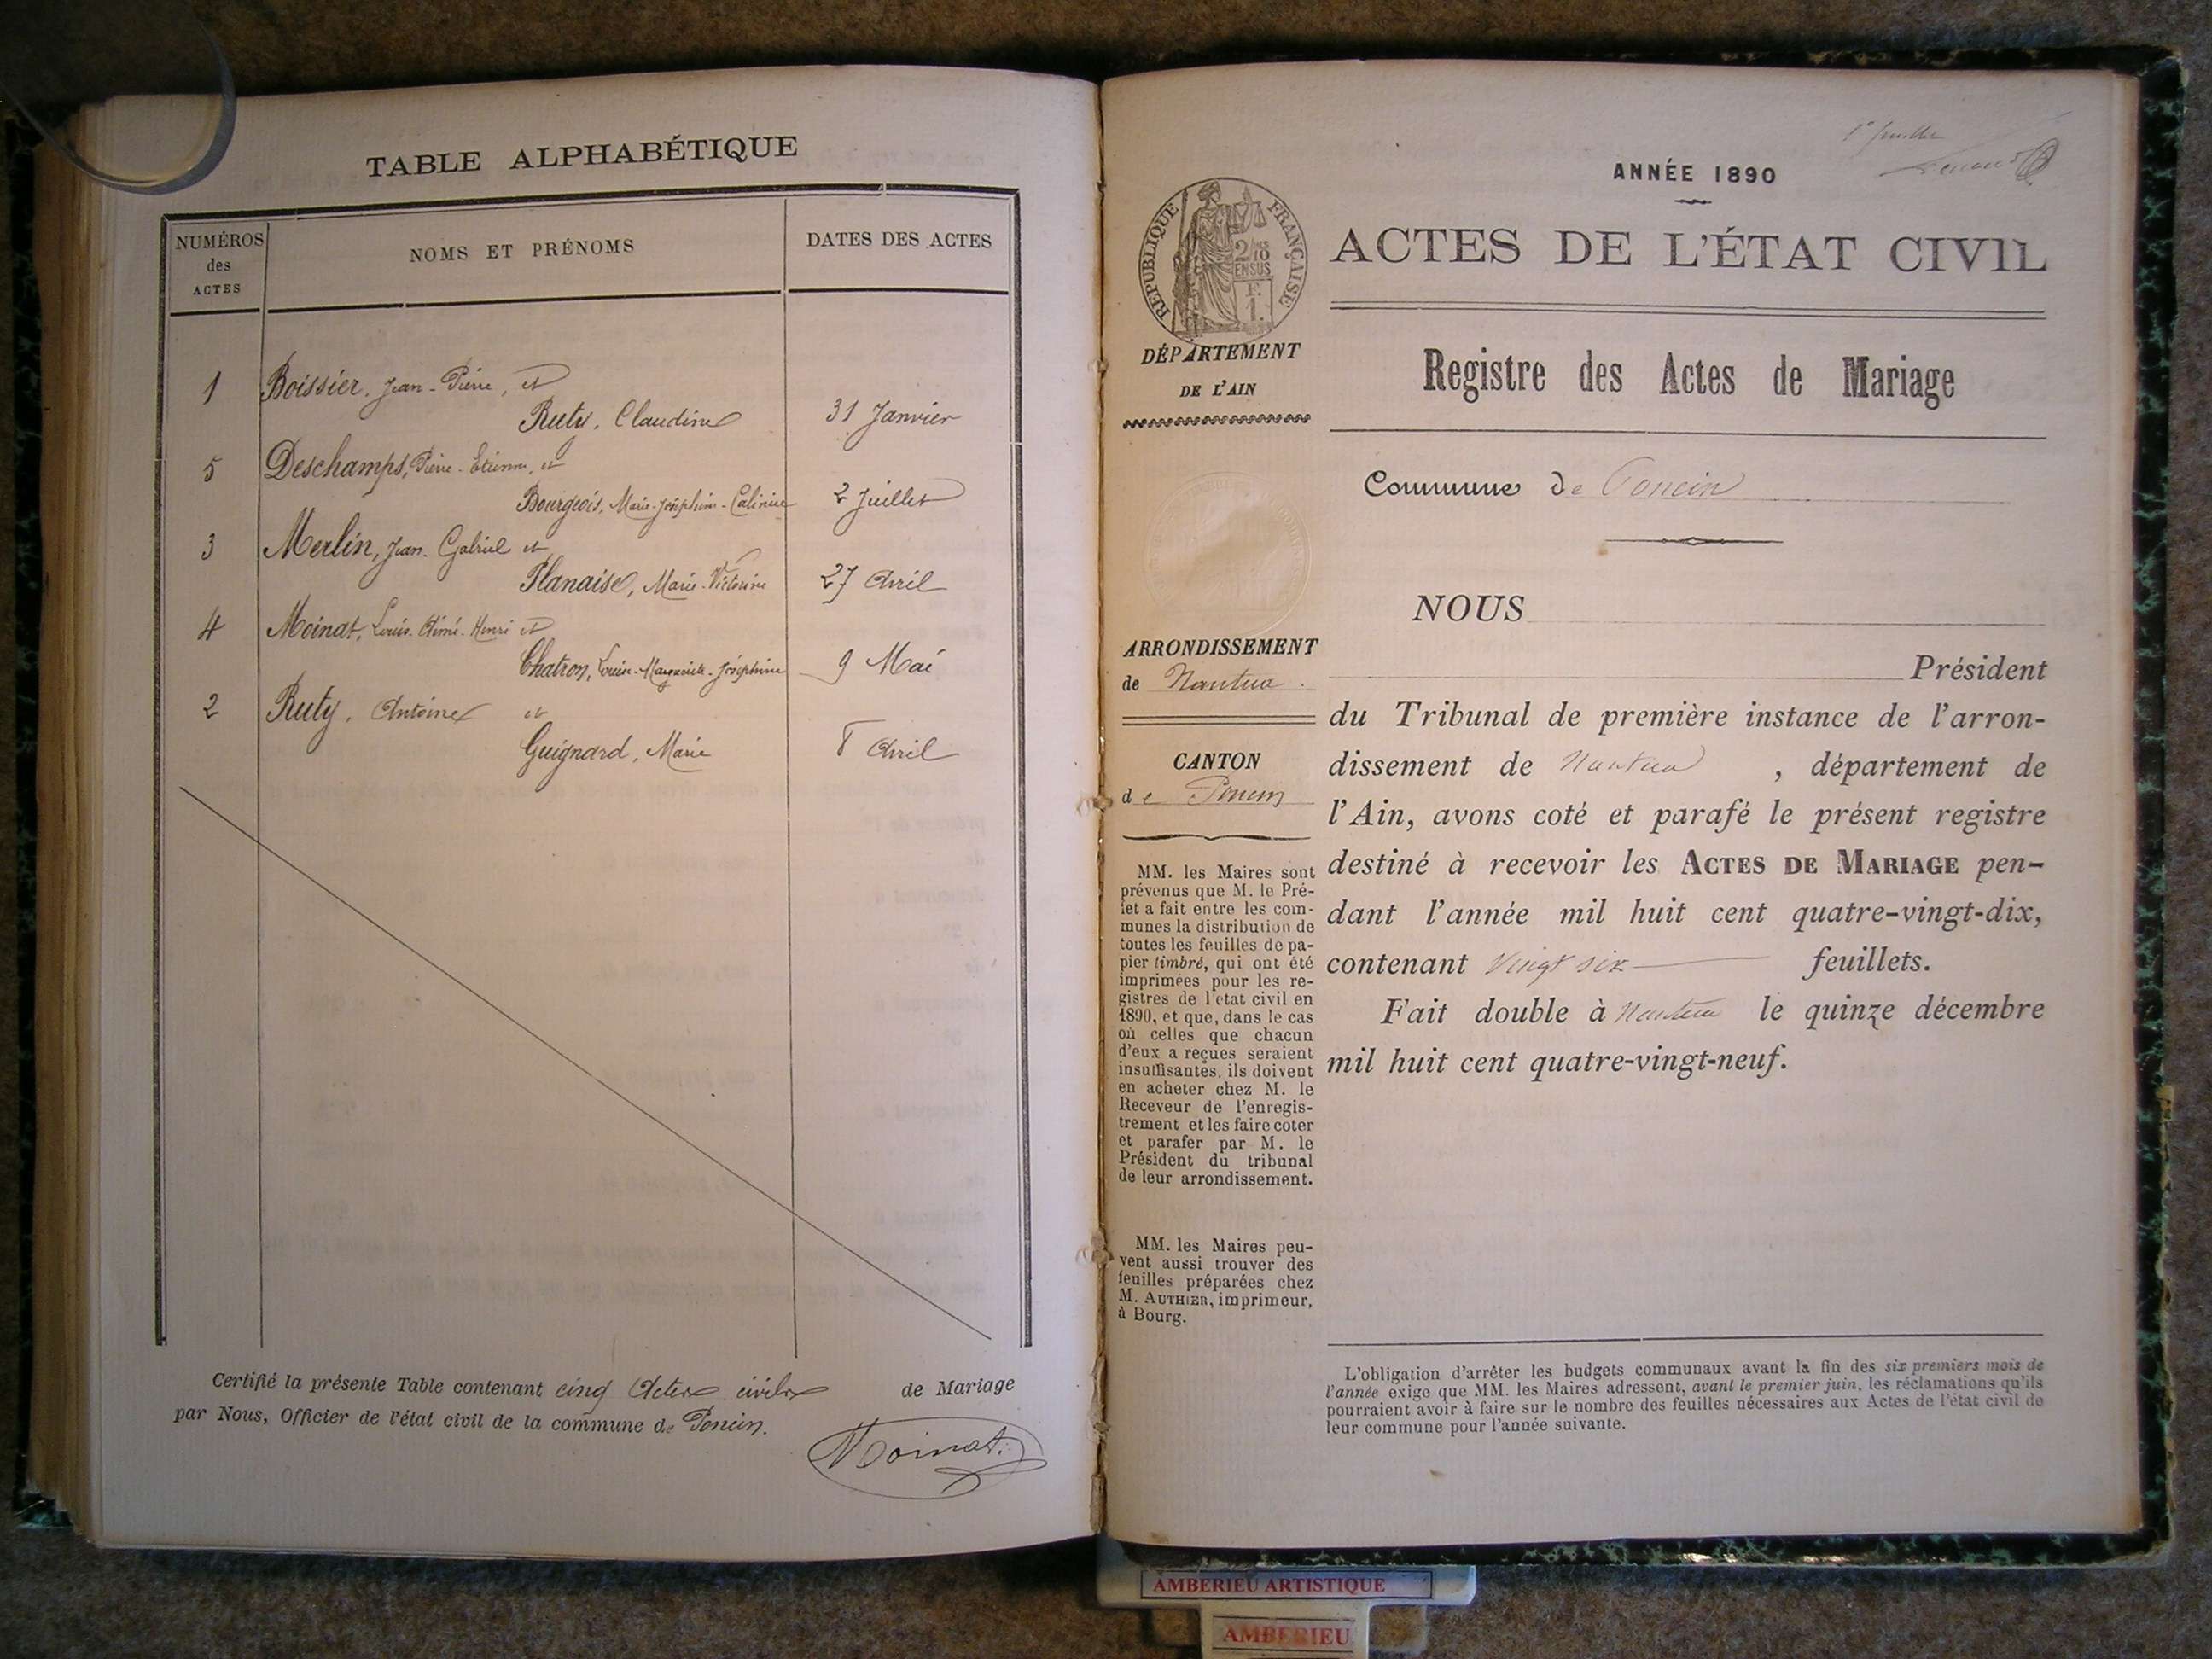 TABLE ALPHABÉTIQUE
NUMÉROS
des
ACTES
NOMS ET PRÉNOMS
DATES DES ACTES
1 Boissier, Jean-Pierre, et
Ruty, Claudine 31 Janvier
5 Deschamps, Pierre-Etienne, et
Bourgeois, Marie-Joséphine- 2 Juillet
3 Merlin, Jean-Gabriel et
Planaise, Marie-Victorine 27 Avril
4 Moinat, Louis-Aimé-Henri et
Chatron, Louise-Marguerite-Joséphine 9 Mai
2 Ruty, Antoine et
Guignard, Marie 8 Avril
Certifié la présente Table contenant cinq Actes civils de Mariage
par Nous, Officier de l'état civil de la commune de Poncin.
Moinat
1er feuillet
ANNÉE 1890
RÉPUBLIQUE FRANÇAISE
2/10
EN SUS
F.
1.
ACTES DE L'ÉTAT CIVIL
DÉPARTEMENT
DE L'AIN
Registre des Actes de Mariage
Commune de Poncin
ARRONDISSEMENT
de Nantua.
CANTON
de Poncin
MM. les Maires sont
prévenus que M. le Pré-
fet a fait entre les com-
munes la distribution de
toutes les feuilles de pa-
pier timbré, qui ont été
imprimées pour les re-
gistres de l'état civil en
1890, et que, dans le cas
où celles que chacun
d'eux a reçues seraient
insuffisantes, ils doivent
en acheter chez M. le
Receveur de l'enregis-
trement et les faire coter
et parafer par M. le
Président du tribunal
de leur arrondissement.
MM. les Maires peu-
vent aussi trouver des
feuilles préparées chez
M. AUTHIER, imprimeur,
à Bourg.
NOUS
Président
du Tribunal de première instance de l'arron-
dissement de Nantua, département de
l'Ain, avons coté et parafé le présent registre
destiné à recevoir les ACTES DE MARIAGE pen-
dant l'année mil huit cent quatre-vingt-dix,
contenant Vingt six feuillets.
Fait double à Nantua le quinze décembre
mil huit cent quatre-vingt-neuf.
L'obligation d'arrêter les budgets communaux avant la fin des six premiers mois de
l'année exige que MM. les Maires adressent, avant le premier juin, les réclamations qu'ils
pourraient avoir à faire sur le nombre des feuilles nécessaires aux Actes de l'état civil de
leur commune pour l'année suivante.
AMBERIEU ARTISTIQUE
AMBERIEU